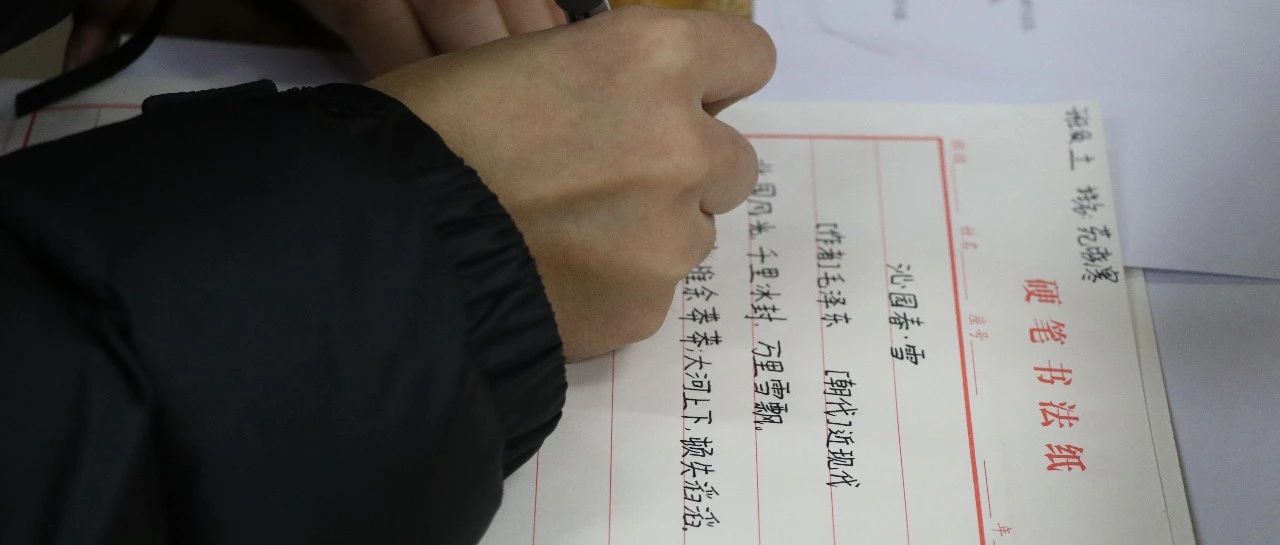 硬笔书法纸
班级 姓名 座号 年
沁园春·雪
[作者]毛泽东 [朝代]近现代
国风光,千里冰封,万里雪飘。
惟余莽莽;大河上下,顿失滔滔。